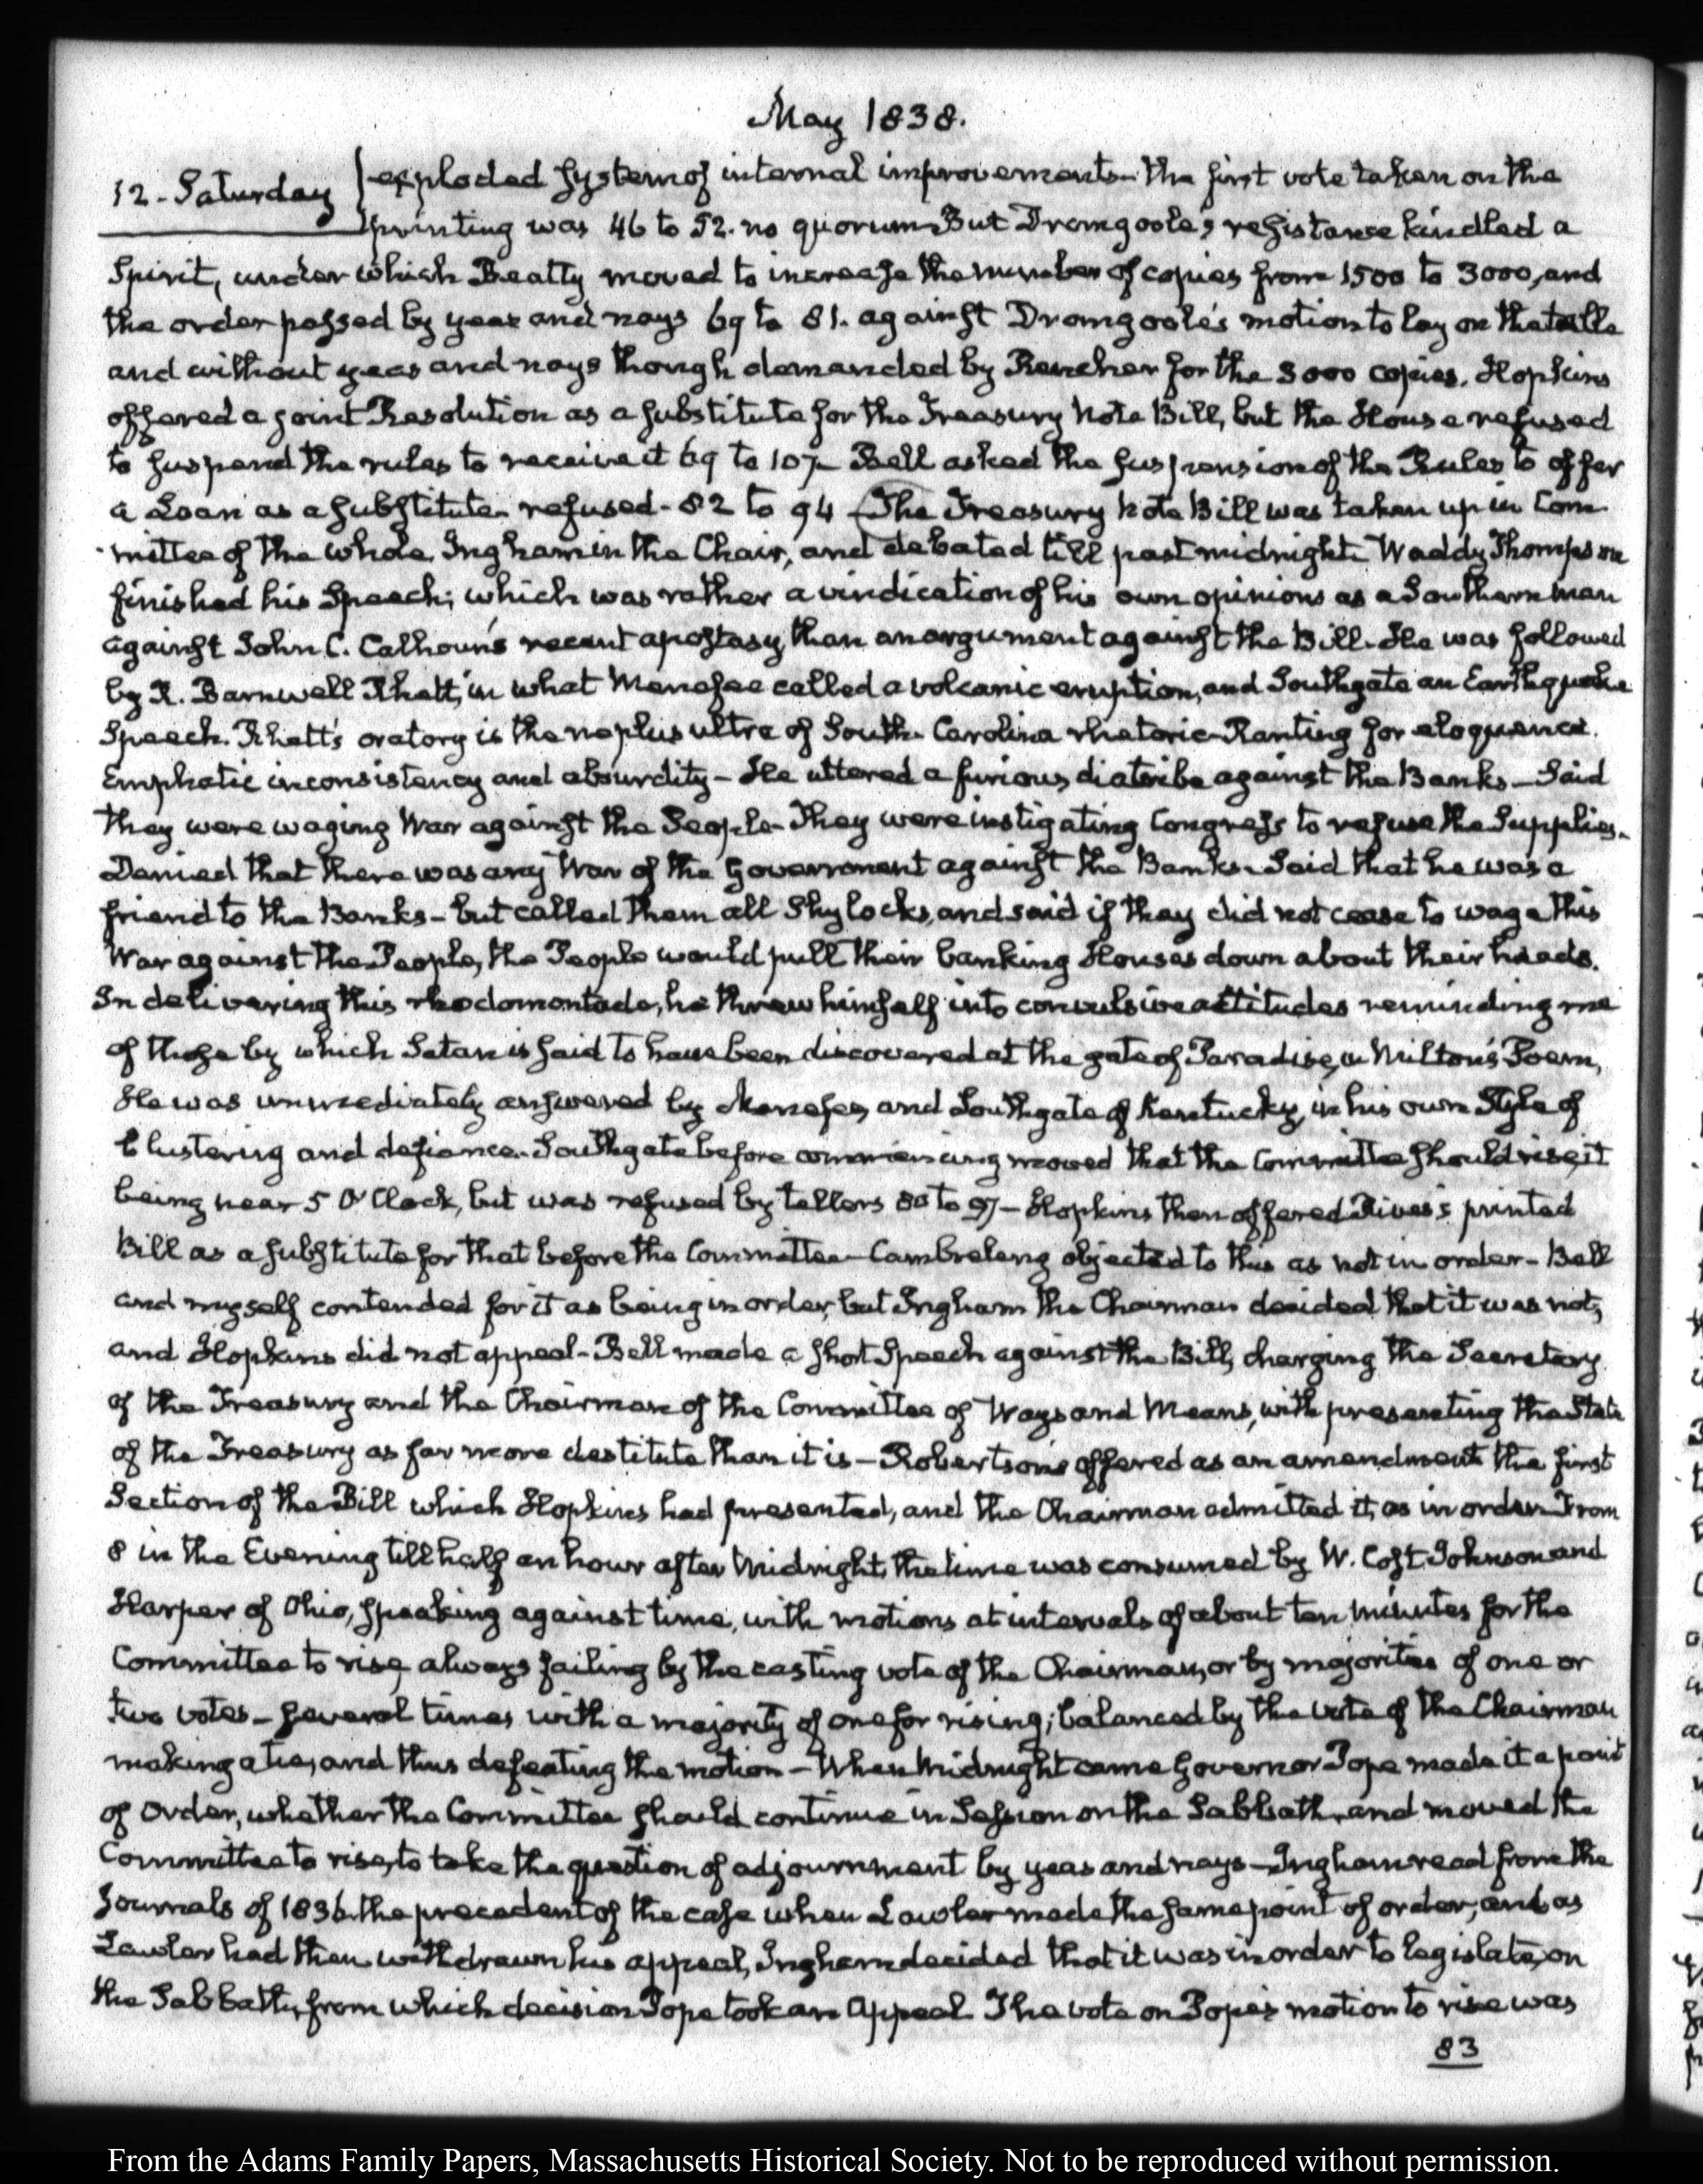 May 1838.
12. Saturday } exploded System of internal improvements. The first vote taken on the
printing was 46 to 52. no quorum. But Dromgoole's resistance kindled a
Spirit, under which Beatty moved to increase the number of copies from 1500 to 3000, and
the order passed by yeas and nays 69 to 81. against Dromgoole's motion to lay on the table
and without yeas and nays though demanded by Rencher for the 3000 copies. Hopkins
offered a joint Resolution as a substitute for the Treasury Note Bill, but the House refused
to suspend the rules to receive it 69 to 107. Bell asked the suspension of the Rules to offer
a Loan as a substitute refused - 82 to 94 - The Treasury Note Bill was taken up in Com-
-mittee of the whole, Ingham in the Chair, and debated till past midnight. Waddy Thompson
finished his Speech; which was rather a vindication of his own opinions as a Southern man
against John C. Calhoun's recent apostasy, than an argument against the Bill. He was followed
by R. Barnwell Rhett, in what Menefee called a volcanic eruption, and Southgate an Earthquake
Speech. Rhett's oratory is the ne plus ultra of South Carolina rhetoric - Ranting for eloquence.
Emphatic inconsistency and absurdity - He uttered a furious diatribe against the Banks - Said
they were waging War against the People - They were instigating Congress to refuse the Supplies -
Denied that there was any War of the Government against the Banks - Said that he was a
friend to the Banks - but called them all Shylocks, and said if they did not cease to wage this
War against the People, the People would pull their banking Houses down about their heads.
In delivering this rhodomontade, he threw himself into convulsive attitudes reminding me
of those by which Satan is said to have been discovered at the gate of Paradise, in Milton's Poem,
He was immediately answered by Menefee, and Southgate of Kentucky, in his own Style of
blustering and defiance. Southgate before commencing moved that the Committee should rise, it
being near 5 O'Clock, but was refused by tellers 80 to 97 - Hopkins then offered Rives's printed
Bill as a substitute for that before the Committee - Cambreleng objected to this as not in order - Bell
and myself contended for it as being in order, but Ingham the Chairman decided that it was not,
and Hopkins did not appeal - Bell made a short Speech against the Bill, charging the Secretary
of the Treasury and the Chairman of the Committee of Ways and Means, with presenting the State
of the Treasury as far more destitute than it is - Robertson offered as an amendment the first
Section of the Bill which Hopkins had presented, and the Chairman admitted it, as in order. From
8 in the Evening till half an hour after Midnight, the time was consumed by W. Cost Johnson and
Harper of Ohio, speaking against time, with motions at intervals of about ten minutes for the
Committee to rise, always failing by the casting vote of the Chairman, or by majorities of one or
two votes - several times with a majority of one for rising; balanced by the vote of the Chairman
making a tie, and thus defeating the motion - When Midnight came Governor Pope made it a point
of Order, whether the Committee should continue in Session on the Sabbath, and moved the
Committee to rise, to take the question of adjournment by yeas and nays - Ingham read from the
Journals of 1836 the precedent of the case when Lawler made the same point of order; and as
Lawler had then withdrawn his appeal, Ingham decided that it was in order to legislate, on
the Sabbath, from which decision Pope took an Appeal. The vote on Pope's motion to rise was
83
From the Adams Family Papers, Massachusetts Historical Society. Not to be reproduced without permission.